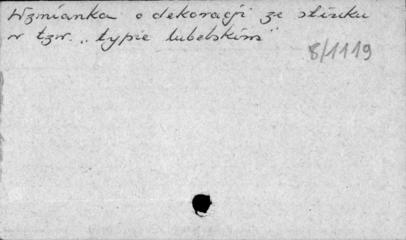 Wzmianka o dekoracji ze stiuku
w tzw. "typie lubelskim"
8/1119